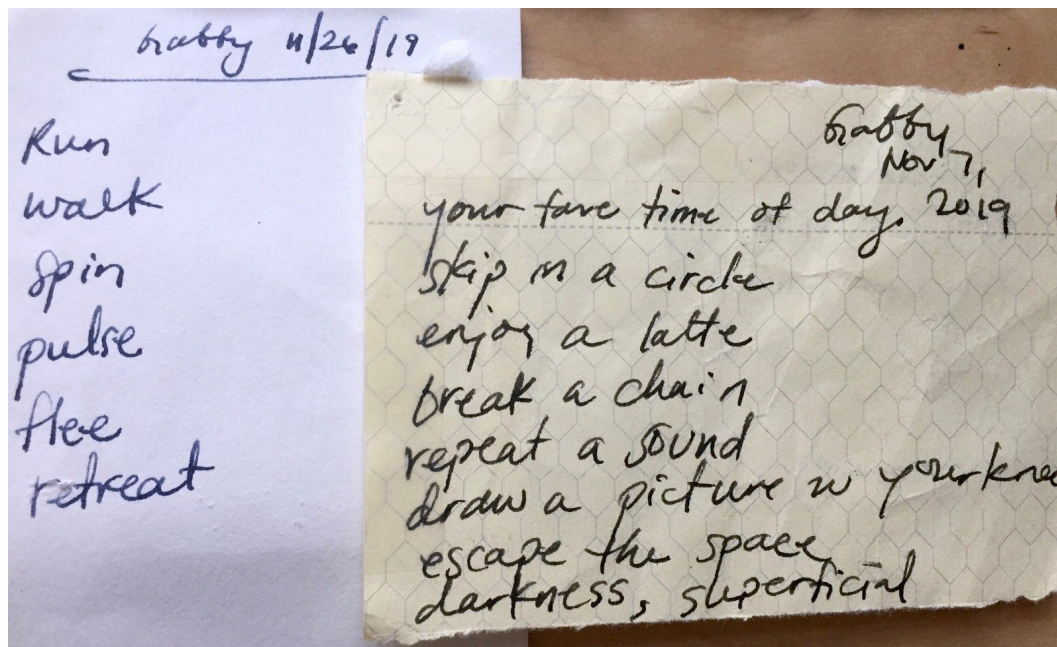 Gabby 11/26/19
Run
walk
Spin
pulse
flee
retreat
Gabby
Nov 7,
your fave time of day. 2019
skip in a circle
enjoy a latte
break a chain
repeat a sound
draw a picture w your
escape the space
darkness, superficial